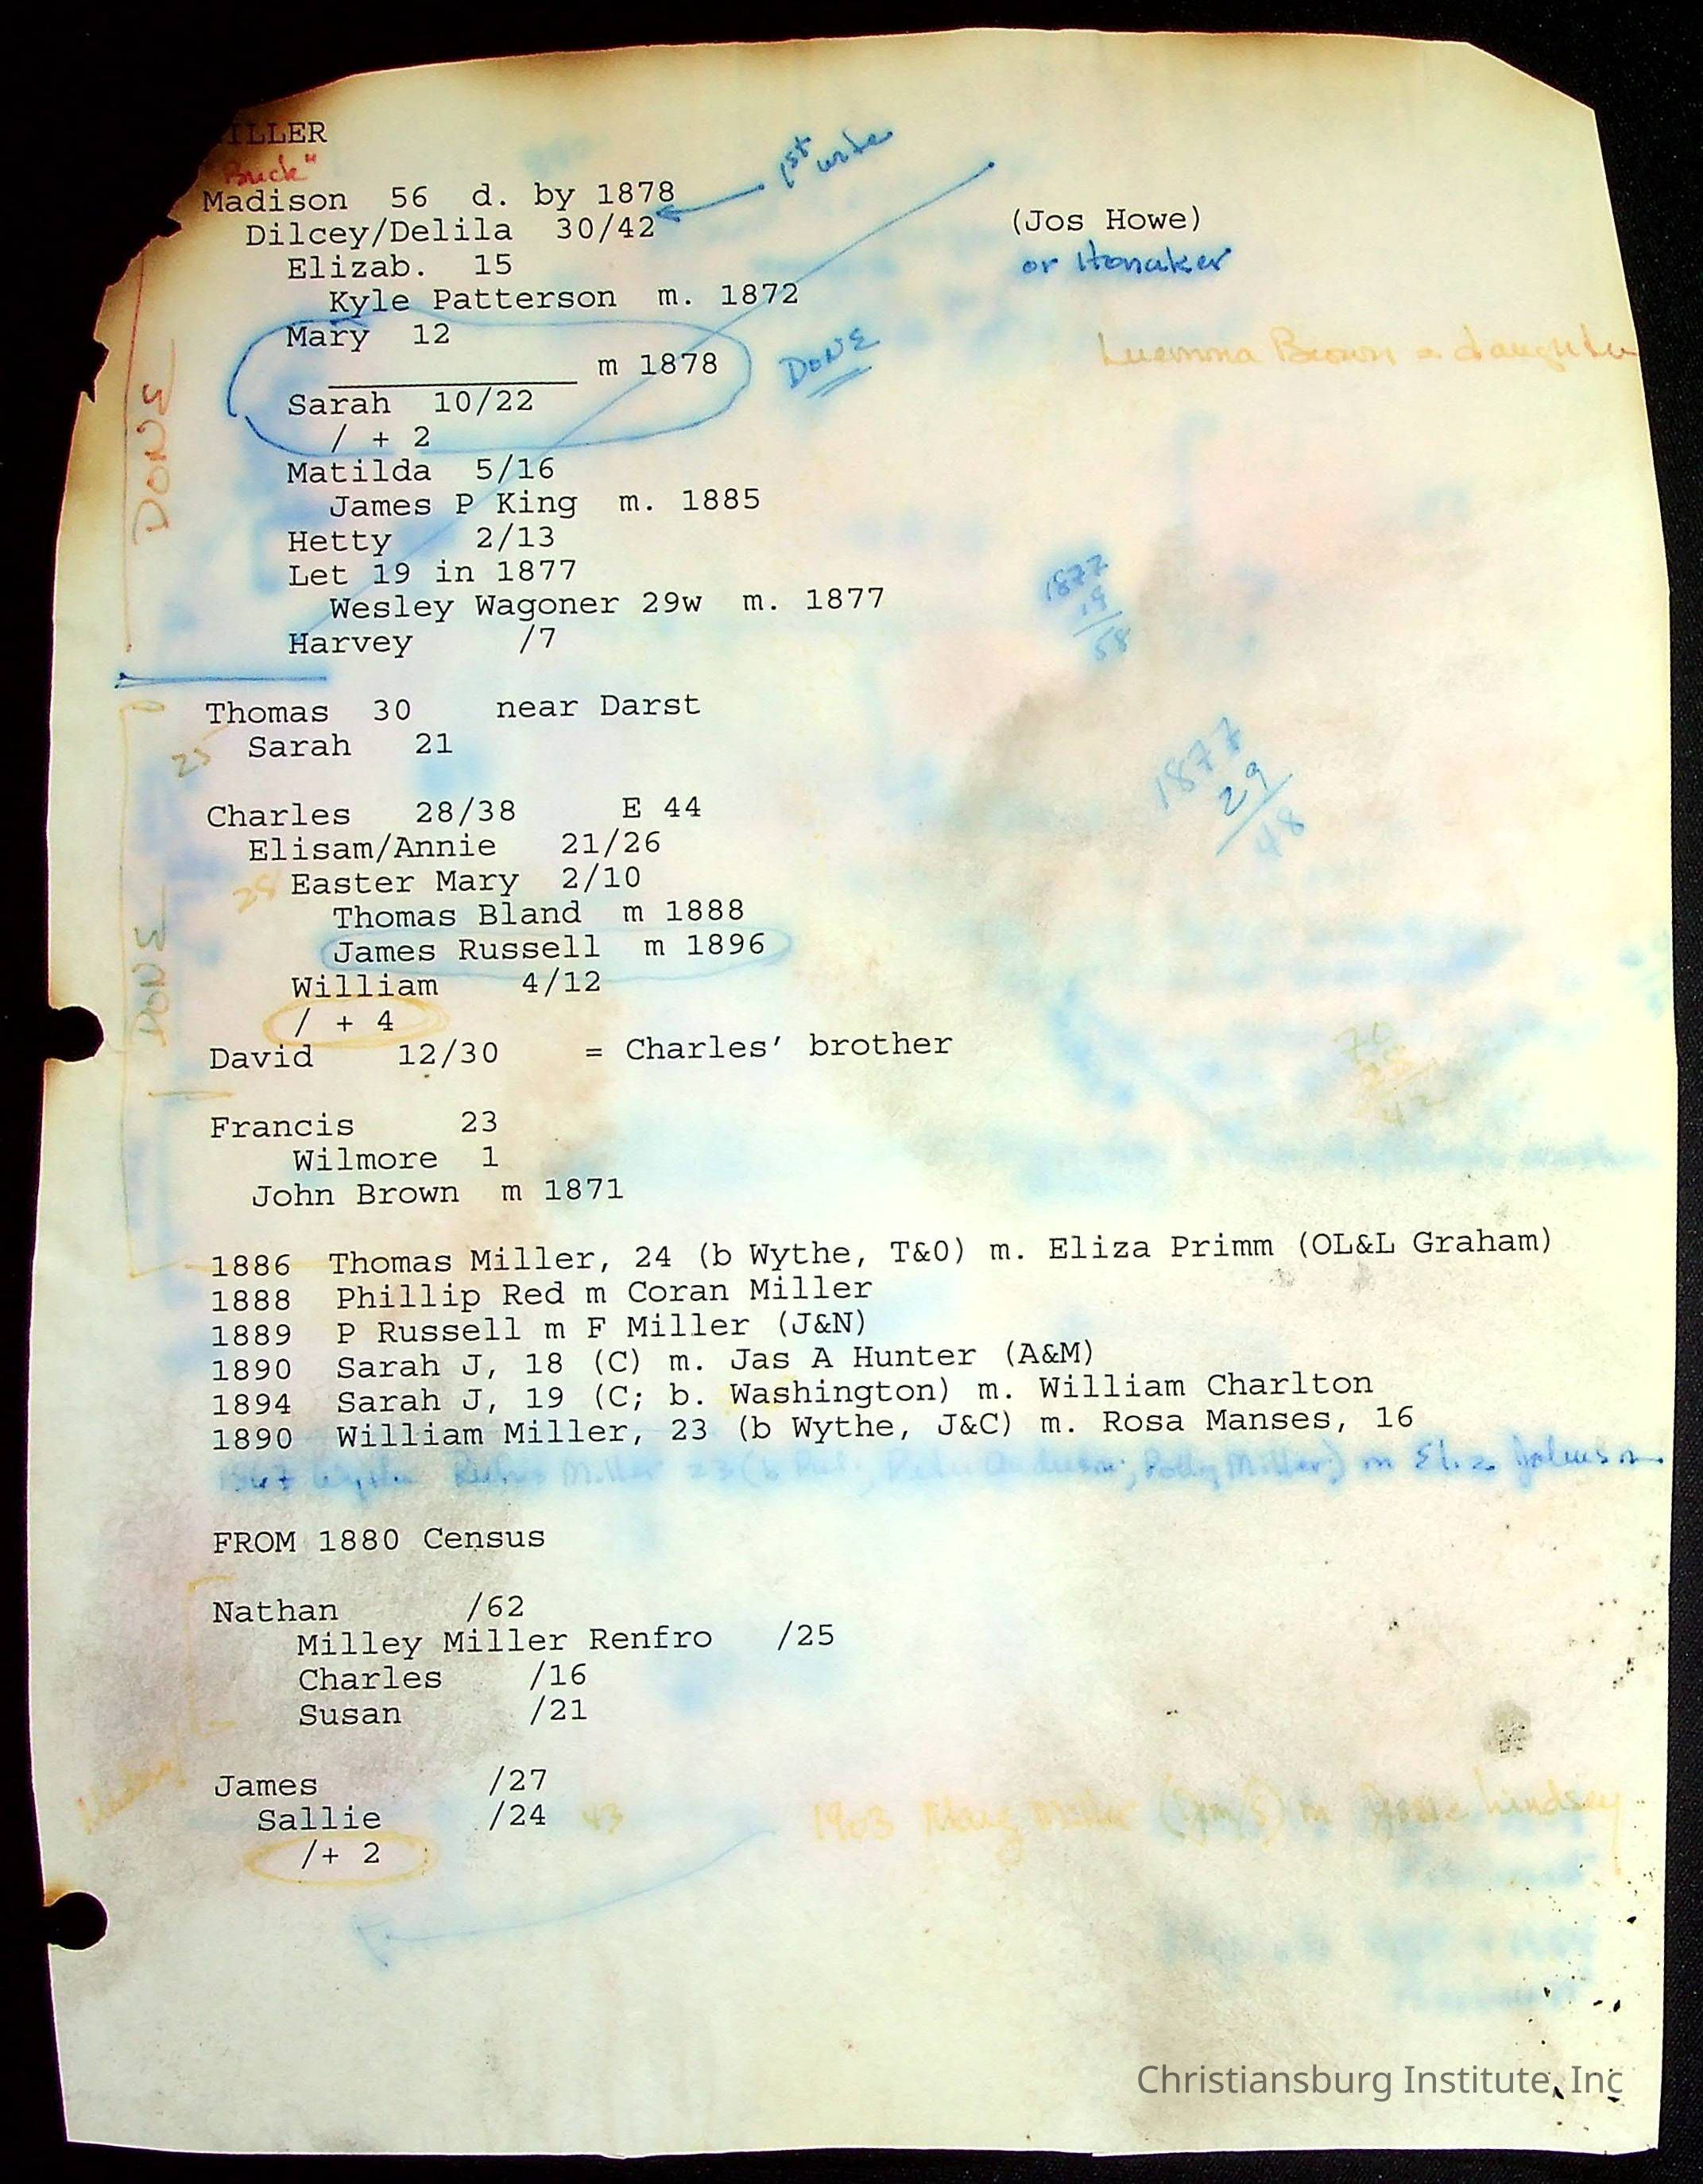 MILLER
Buck"
1st wife
Madison 56 d. by 1878
Dilcey/Delila 30/42 (Jos Howe)
Elizab. 15 or Honaker
Kyle Patterson m. 1872
Mary 12
Luemma Brown a daughter
__________ m 1878 DONE
Sarah 10/22
/ + 2
DONE
Matilda 5/16
James P King m. 1885
Hetty 2/13
Let 19 in 1877
1877
19
58
Wesley Wagoner 29w m. 1877
Harvey /7
Thomas 30 near Darst
25 Sarah 21
1877
29
48
Charles 28/38 E 44
Elisam/Annie 21/26
25 Easter Mary 2/10
Thomas Bland m 1888
James Russell m 1896
DONE
William 4/12
/ + 4
70
28
42
David 12/30 = Charles' brother
Francis 23
Wilmore 1
John Brown m 1871
1886 Thomas Miller, 24 (b Wythe, T&O) m. Eliza Primm (OL&L Graham)
1888 Phillip Red m Coran Miller
1889 P Russell m F Miller (J&N)
1890 Sarah J, 18 (C) m. Jas A Hunter (A&M)
1894 Sarah J, 19 (C; b. Washington) m. William Charlton
1890 William Miller, 23 (b Wythe, J&C) m. Rosa Manses, 16
1867 Wythe Miller 23 (b Pul., Polly Miller) m Eliza Johnson
FROM 1880 Census
Nathan /62
Milley Miller Renfro /25
Charles /16
Susan /21
James /27
Sallie /24 43 1903 Mary Miller m Lindsey
/+ 2
Christiansburg Institute, Inc